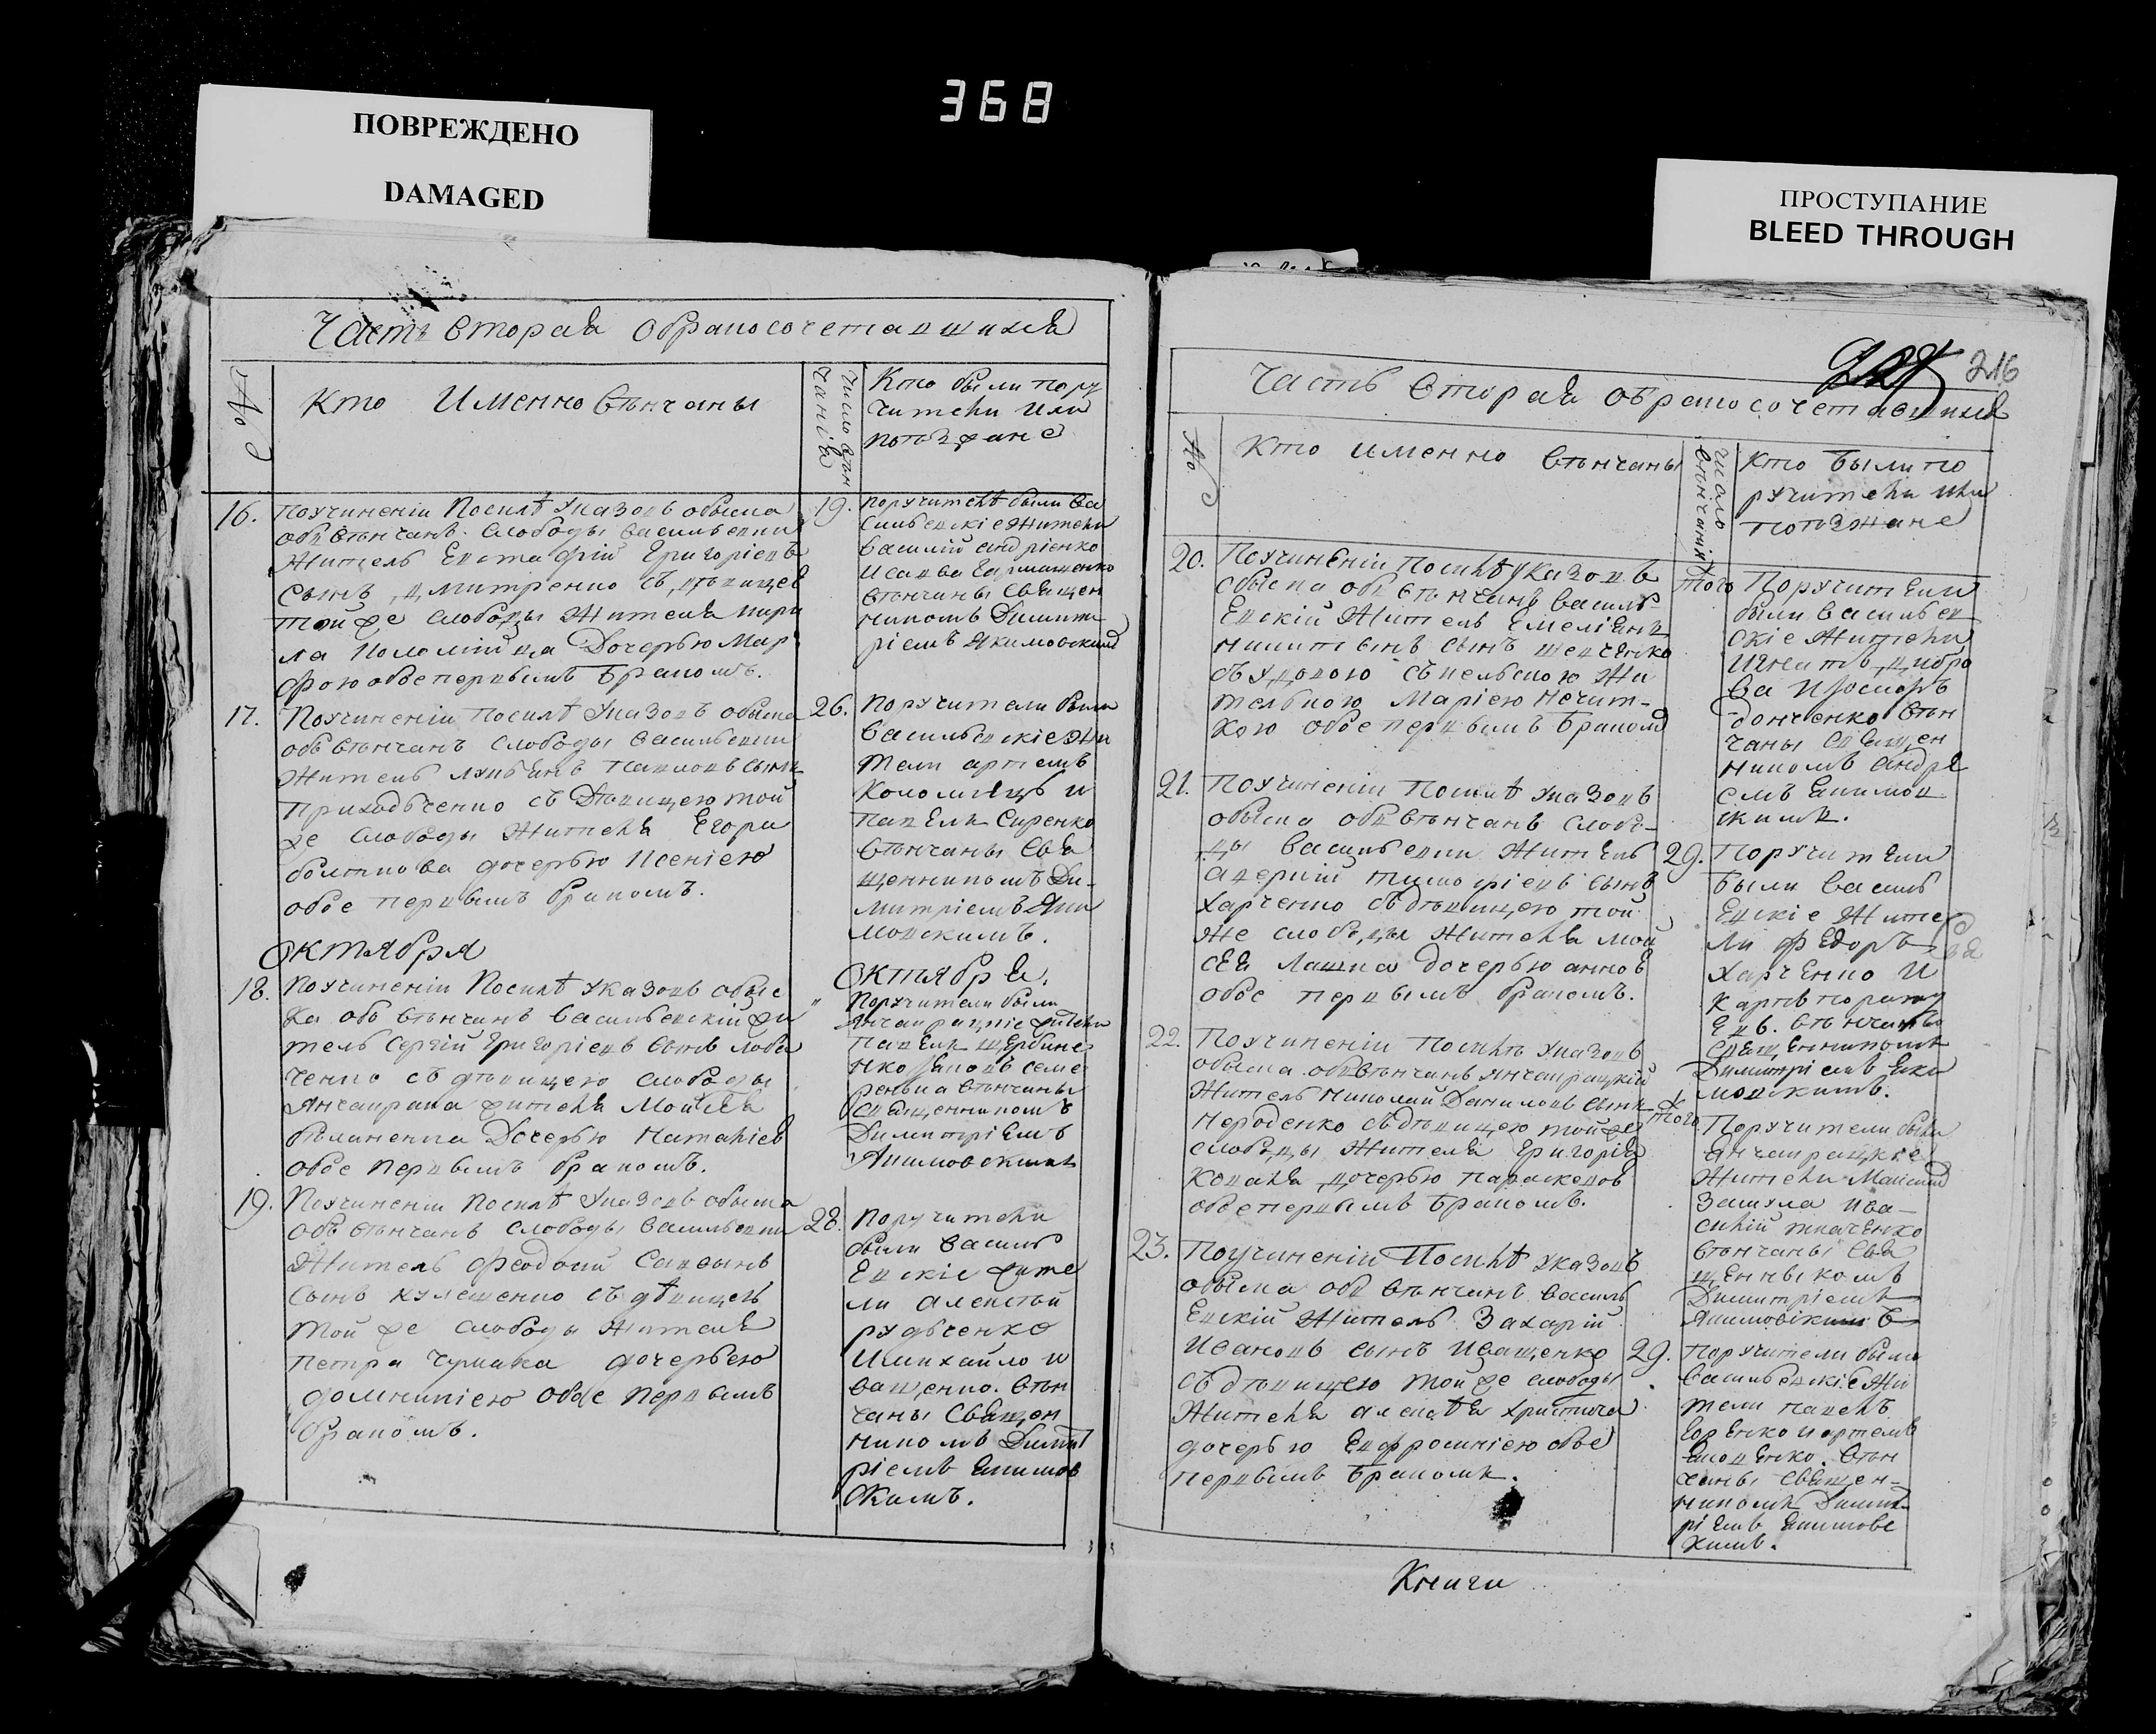 368
ПОВРЕЖДЕНО
DAMAGED
ПРОСТУПАНИЕ
BLEED THROUGH
Часть вторая обракосочетавшихся
№
Кто Именно вѣнчаны
число вѣн
чанія
Кто были пору
чители или
поѣзжане
16.
Поучиненіи Посилѣ Указовъ обыска
обвѣнчанъ Слободы Васильевки
Житель Евстафій Григоріевъ
Сынъ Дмитренко съ дѣвицею
тойже слободы Жителя Кири
ла Коломійца Дочерью Мар
фою обое первымъ бракомъ.
19.
Поручителѣ были Ва
сильевскіе Жители
Василій андріенко
И савва
вѣнчаны Священ
никомъ Димит
ріемъ Якимовскимъ
17.
Поучиненіи Посилѣ Указовъ обыска
обвѣнчанъ Слободы Васильевки
Житель Павловъ Сынъ
Приходченко съ Дѣвицею той
же слободы Жителя Егора
дочерью Ксеніею
обое первымъ бракомъ.
26.
Поручители были
Васильевскіе Жи
тели артемъ
Коломіецъ и
Павелъ Сиренко
вѣнчаны Свя
щенникомъ Ди-
митріемъ Яки
мовскимъ.
Октября
18.
Поучиненіи Посилѣ Указовъ обыс
ка обвѣнчанъ Васильевскій жи
тель Сергій Григоріевъ Сынъ Лоба
ченко съ дѣвицею слободы
Янчекрака жителя Моисея
Дочерью Наталіею
обое первымъ бракомъ.
Октября.
"
Поручители были
Янчекрацкіе жители
Павелъ Щербине
нко Яковъ Семе
вѣнчаны
священникомъ
Димитріемъ
Якимовскимъ
19.
Поучиненіи Посилѣ Указовъ обыска
обвѣнчанъ слободы Васильевки
Житель Феодосій Саввинъ
Сынъ Кулешенко съ дѣвицею
той же слободы Жителя
Петра Чумака дочерью
домникіею обое первымъ
бракомъ.
28.
Поручители
были Василь
евскіе жите
ли алексѣй
рудченко
И михайло и
ващенко. вѣн
чаны Священ
никомъ Димит
ріемъ Якимов
скимъ.
216
Часть вторая обракосочетавшихся
№
Кто именно вѣнчаны
число
вѣнчанія
Кто были по
ручители или
поѣзжане
20.
Поучиненіи Посилѣ Указовъ
обыска обвѣнчанъ Василь
евскій Житель Емеліанъ
Никитинъ сынъ Шевченко
съ удовою Жи
тельною Маріею Нечит-
кою обое первымъ бракомъ
того
Поручители
были Васильев
скіе Жители
Игнатъ Цибро
ва Прокопъ
донченко вѣн
чаны Священ
никомъ андре
емъ Екимов
скимъ.
21.
Поучиненіи Посилѣ указовъ
обыска обвѣнчанъ Слобо-
ды Васильевки Житель
аверкій тимофіевъ сынъ
Харченко съ дѣвицею той
же слободы Жителя Мои
сея Лашка дочерью анною
обое первымъ бракомъ.
29.
Поручители
были Василь
евскіе Жите
ли федоръ
Харченко И
Карпъ
вѣнчаны
священникомъ
Димитріемъ Еки
мовскимъ.
22.
Поучиненіи Посилѣ указовъ
обыска обвѣнчанъ Янчекрацкій
Житель Николай Даниловъ Сынъ
Нероденко съ дѣвицею тойже
слободы Жителя Григорія
Коваля дочерью Параскевою
обое первымъ бракомъ.
того
Поручители были
Янчекрацкіе
Жители Максимъ
Зашула Ива-
силій ткаченко
вѣнчаны Свя
щенныкомъ
Димитріемъ
Якимовскимъ
23.
Поучиненіи Посилѣ указовъ
обыска обвѣнчанъ Василь
евскій Житель Захарій
Ивановъ сынъ Иващенко
съ дѣвицею тойже слободы
Жителя алексѣя Христича
дочерью Евфросиніею обое
первымъ бракомъ.
29.
Поручители были
Васильевскіе Жи
тели павелъ
Горенко и артемъ
вѣн
чаны Священ-
никомъ Димит
ріемъ Якимовс
кимъ.
Книги